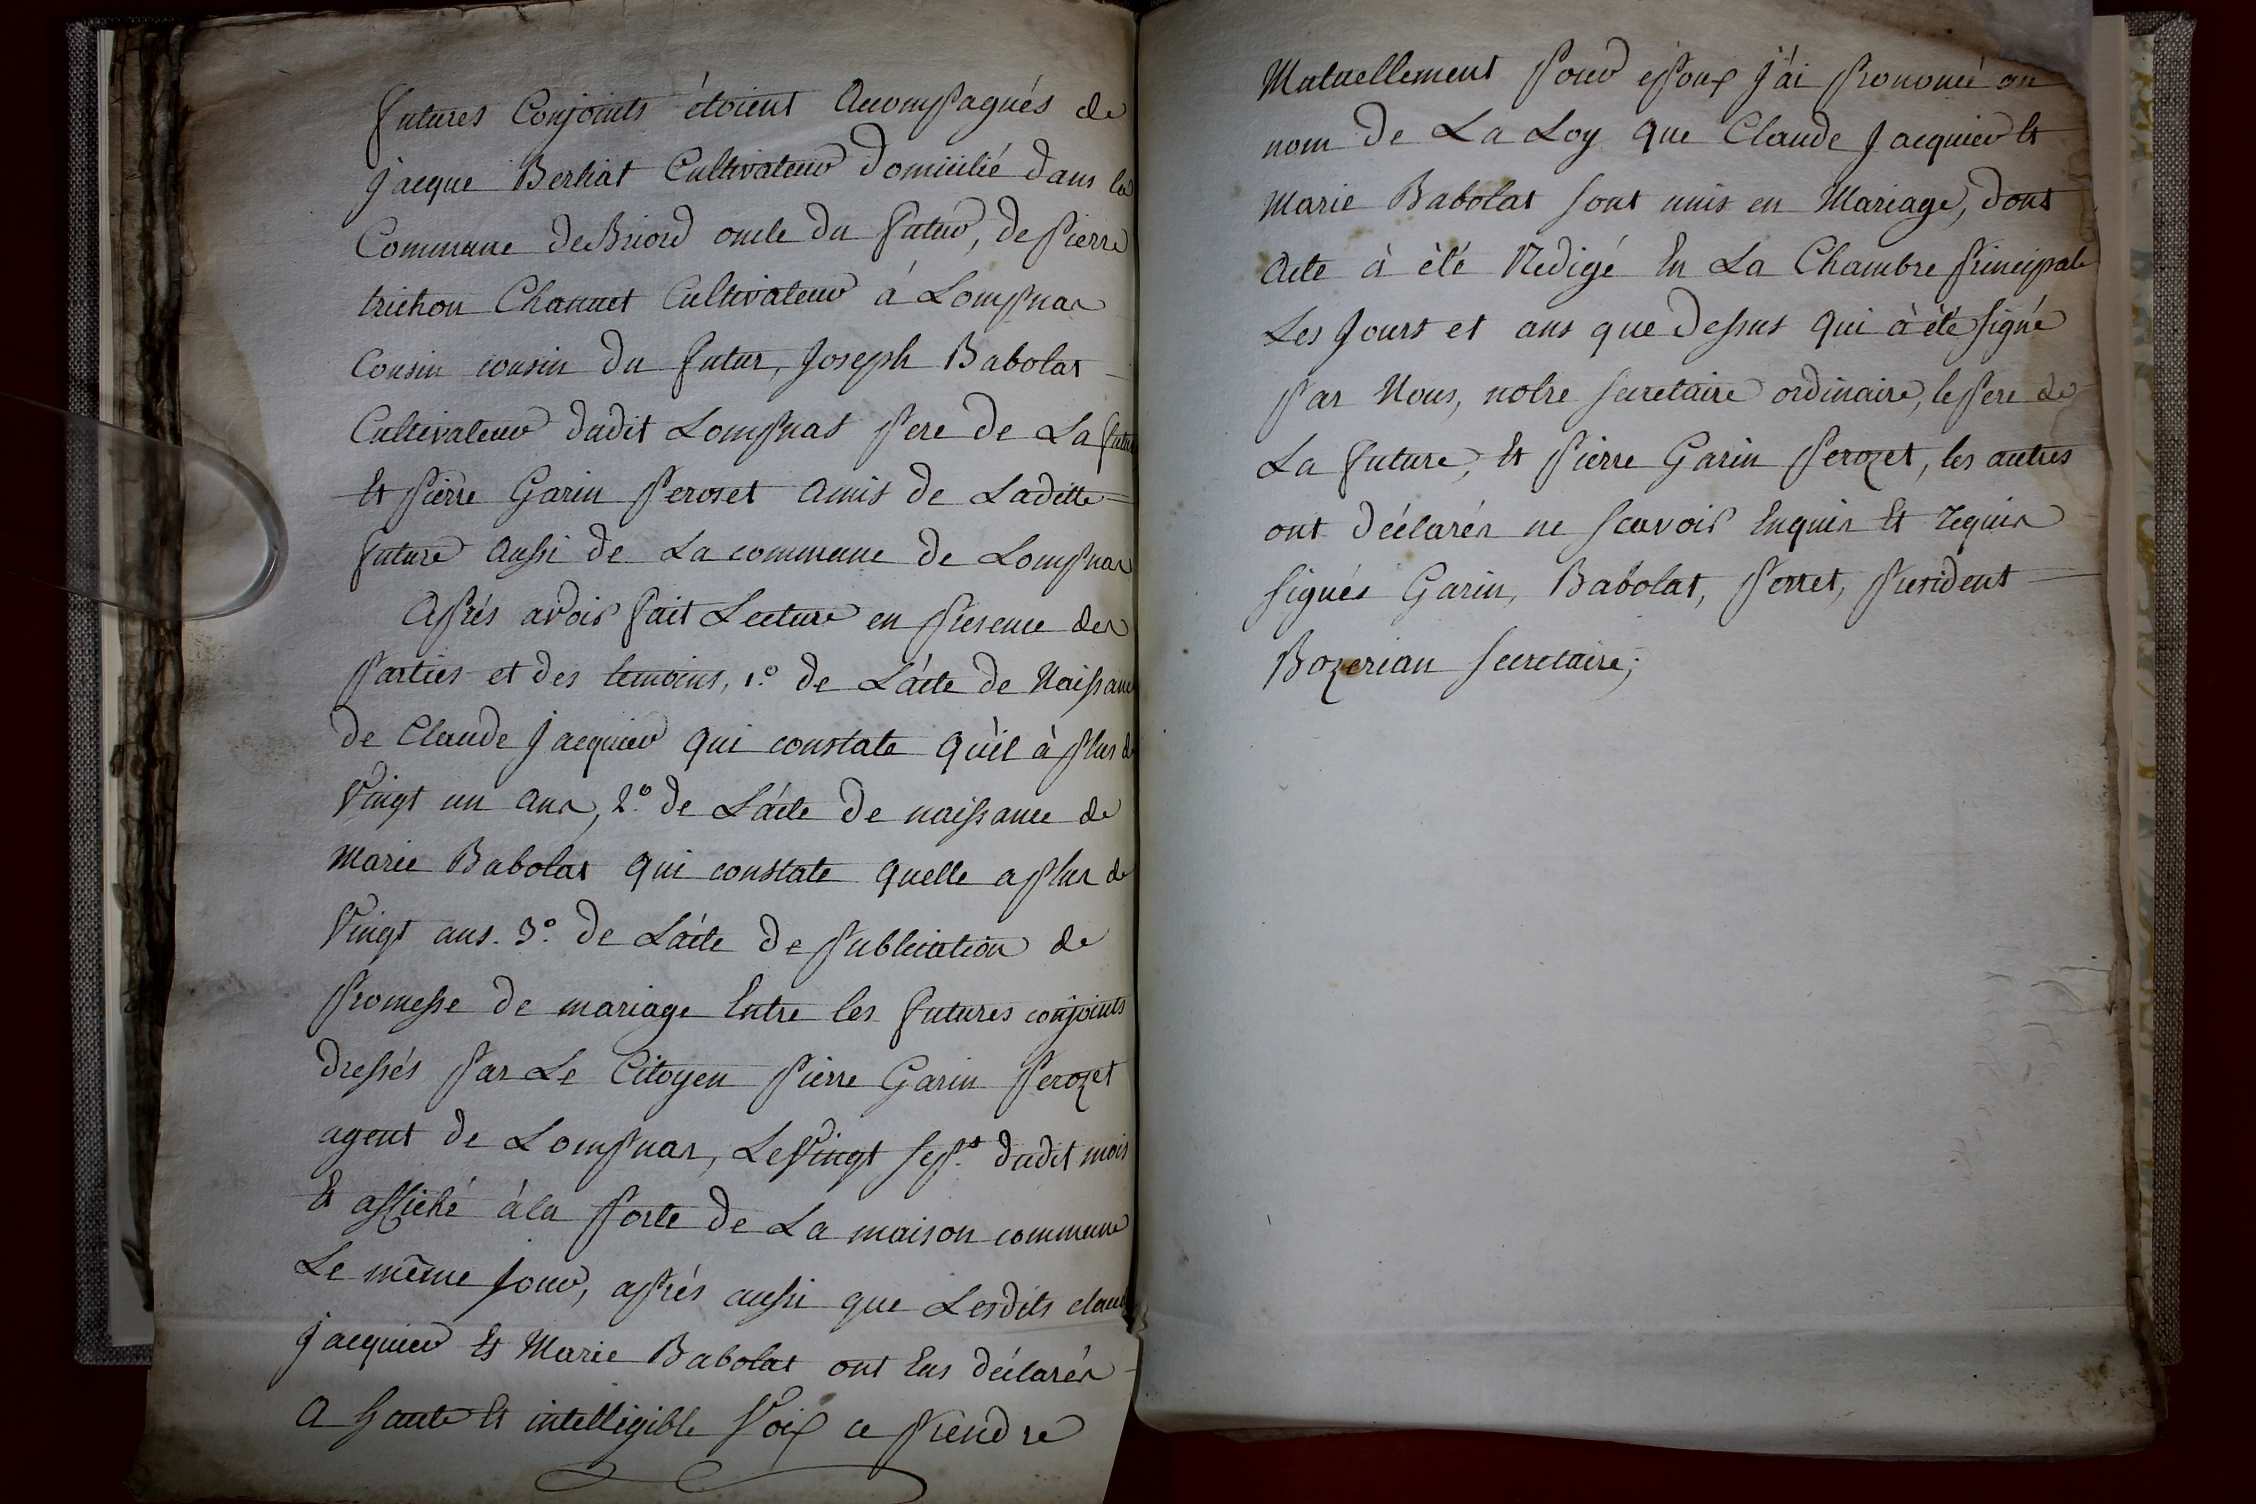 futures Conjoints étoient Acompagnés de
jacque Berliat Cultivateur Domicilié dans la
Commune de Briord oncle du futur, de pierre
trichon Channet Cultivateur á Lompnas
Cousin cousin du futur, Joseph Babolat
Cultivateur dudit Lompnas pere de La future
Et pierre Garin perozet amis de Laditte
future Aussi de La commune de Lompnas
Aprés avoir fait Lecture en présence des
parties et des temoins, 1.º de L'acte de Naissance
de Claude jacquier qui constate qu'il à plus de
vingt un ans, 2.º de L'acte de naissance de
Marie Babolat qui constate quelle a plus de
vingt ans. 3.º de L'acte de publication de
promesse de mariage Entre les futures conjoints
dressés par Le Citoyen pierre Garin perozet
agent de Lompnas, Le vingt sept dudit mois
Et affiché à la porte de La maison commune
Le même jour, aprés aussi que Lesdits claude
jacquier Et Marie Babolat ont Eus déclarés
A haute Et intelligible voix ce prendre
Mutuellement pour epoux j'ai prononcé au
nom de La Loy que Claude jacquier Et
Marie Babolat sont unis en Mariage, dont
Acte à èté Redigé En La Chambre principale
Les jours et ans que dessus qui à èté signé
par Nous, notre secretaire ordinaire, le pere de
La future, Et pierre Garin perozet, les autres
ont déclarés ne scavoir Enquis Et requis
signés Garin, Babolat, perret, president
Bozerian secretaire;